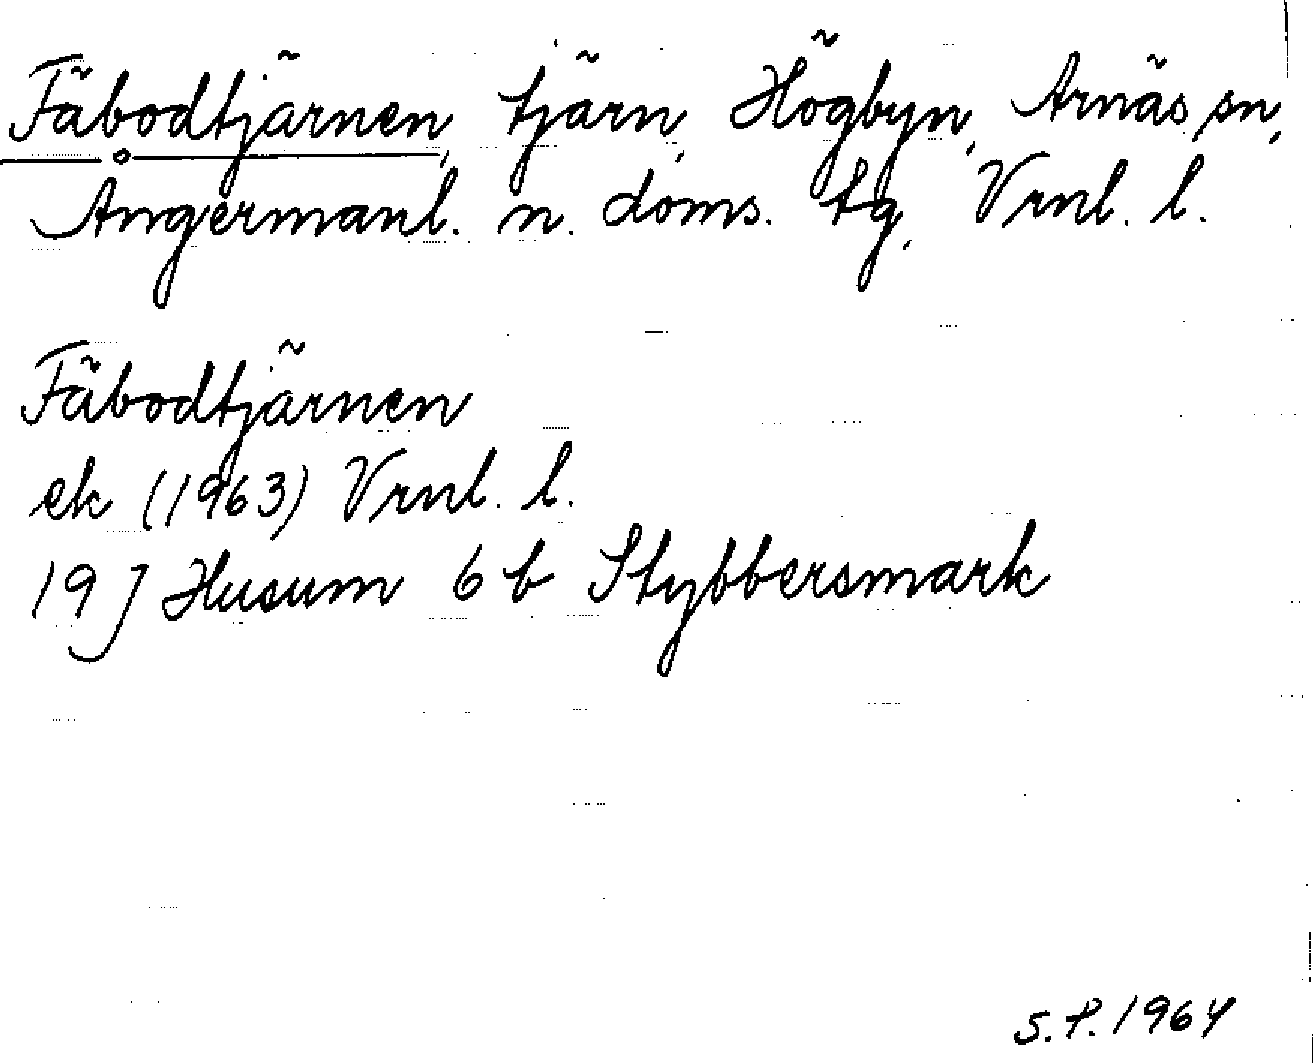 Fäbodtjärnen, tjärn, Högbyn, Arnäs sn,
Ångermanl. n. doms. tg, Vrnl. l.
Fäbodtjärnen
ek (1963) Vrnl. l.
19 J Husum 6 b Stybbersmark
S.P. 1964